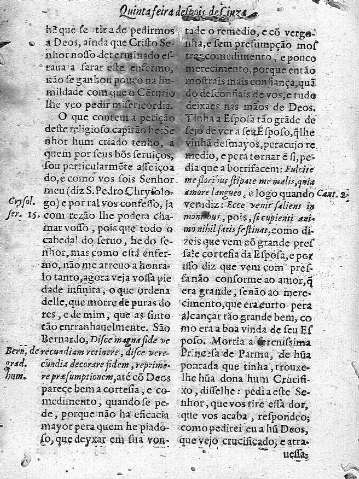 Quinta feira despois de Cinza.
hê que se tira de pedirmos
a Deos, ainda que Cristo Se-
nhor nosso determinado es-
taua a sarar este enfermo,
não se ganhou pouco na hu-
mildade com que o Cēturio
lhe veo pedir misericordia.
O que contem a petição
deste religioso capitão he: Se-
nhor hum criado tenho, a
quem por seus bõs seruiços,
sou particularmẽte afeiçoa
do, e como vos sois Senhor
meu (diz S. Pedro Chrysolo-
go) e por tal vos confesso, ja
com rezão lhe poderà cha-
mar vosso, pois que todo o
cabedal do seruo, he do se-
nhor, mas como està enfer-
mo, não me atreuo a honra-
lo tanto, agora veja vossa pie
dade infinita, o que ordena
delle, que morre de puras do
res, e de mim, que as sinto
tão entranhauelmente. São
Bernardo, Disce magna fide ve
recundiam retinere, disce vere-
cundia decorare fidem, reprime-
re præsumptionem, até cõ Deos
parece bem a cortesia, e co-
medimento, quando se pe-
de, porque não ha eficacia
mayor pera quem he piado-
so, que deyxar em sua von-
Crysol.
ser. 15.
Bern. de
grad.
hum.
tade o remedio, e cõ vergo-
nha, e sem presumpção mos
trar comedimento, e pouco
merecimento, porque então
mostrais mais confiança, quã
do desconfiais de vos, e tudo
deixaes nas mãos de Deos.
Tinha a Esposa tão grãde de
sejo de ver a seu Esposo, q̃ lhe
vinha desmayos, pera cujo re
medio, e pera tornar ẽ si, pe-
dia que a borrifacem: Fulcite
me floribus stipate me malis, quia
amore langueo, e logo quando
vem diz: Ecce venit saliens in
montibus, pois, si cupienti ani-
mo nihil satis festinat, como di-
zeis que vem cõ grande pres
sa? e cortesia da Esposa, e por
isso diz que vem com pres-
são conforme ao amor, q̃
era grãde, senão ao mere-
cimento, que era curto pera
alcançar tão grande bem, co
mo era a boa vinda de seu Es
poso. Morria a Serenissima
Princesa de Parma, de hũa
pontada que tinha, trouxe-
lhe hũa dona hum Crucifi-
xo, disselhe: pedia este Se-
nhor, que vos tire essa dor,
que vos acaba, respondeo;
como pedirei eu a hũ Deos,
que vejo crucificado, e atra-
uessa-
Cant. 2.